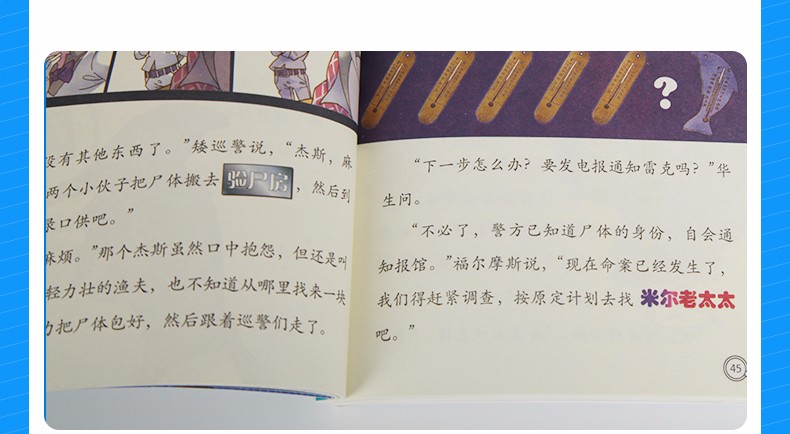 没有其他东西了。”矮巡警说，“杰斯，麻
两个小伙子把尸体搬去验尸房，然后到
录口供吧。”
麻烦。”那个杰斯虽然口中抱怨，但还是叫
轻力壮的渔夫，也不知道从哪里找来一块
把尸体包好，然后跟着巡警们走了。
?
“下一步怎么办？要发电报通知雷克吗？”华
生问。
“不必了，警方已知道尸体的身份，自会通
知报馆。”福尔摩斯说，“现在命案已经发生了，
我们得赶紧调查，按原定计划去找米尔老太太
吧。”
45